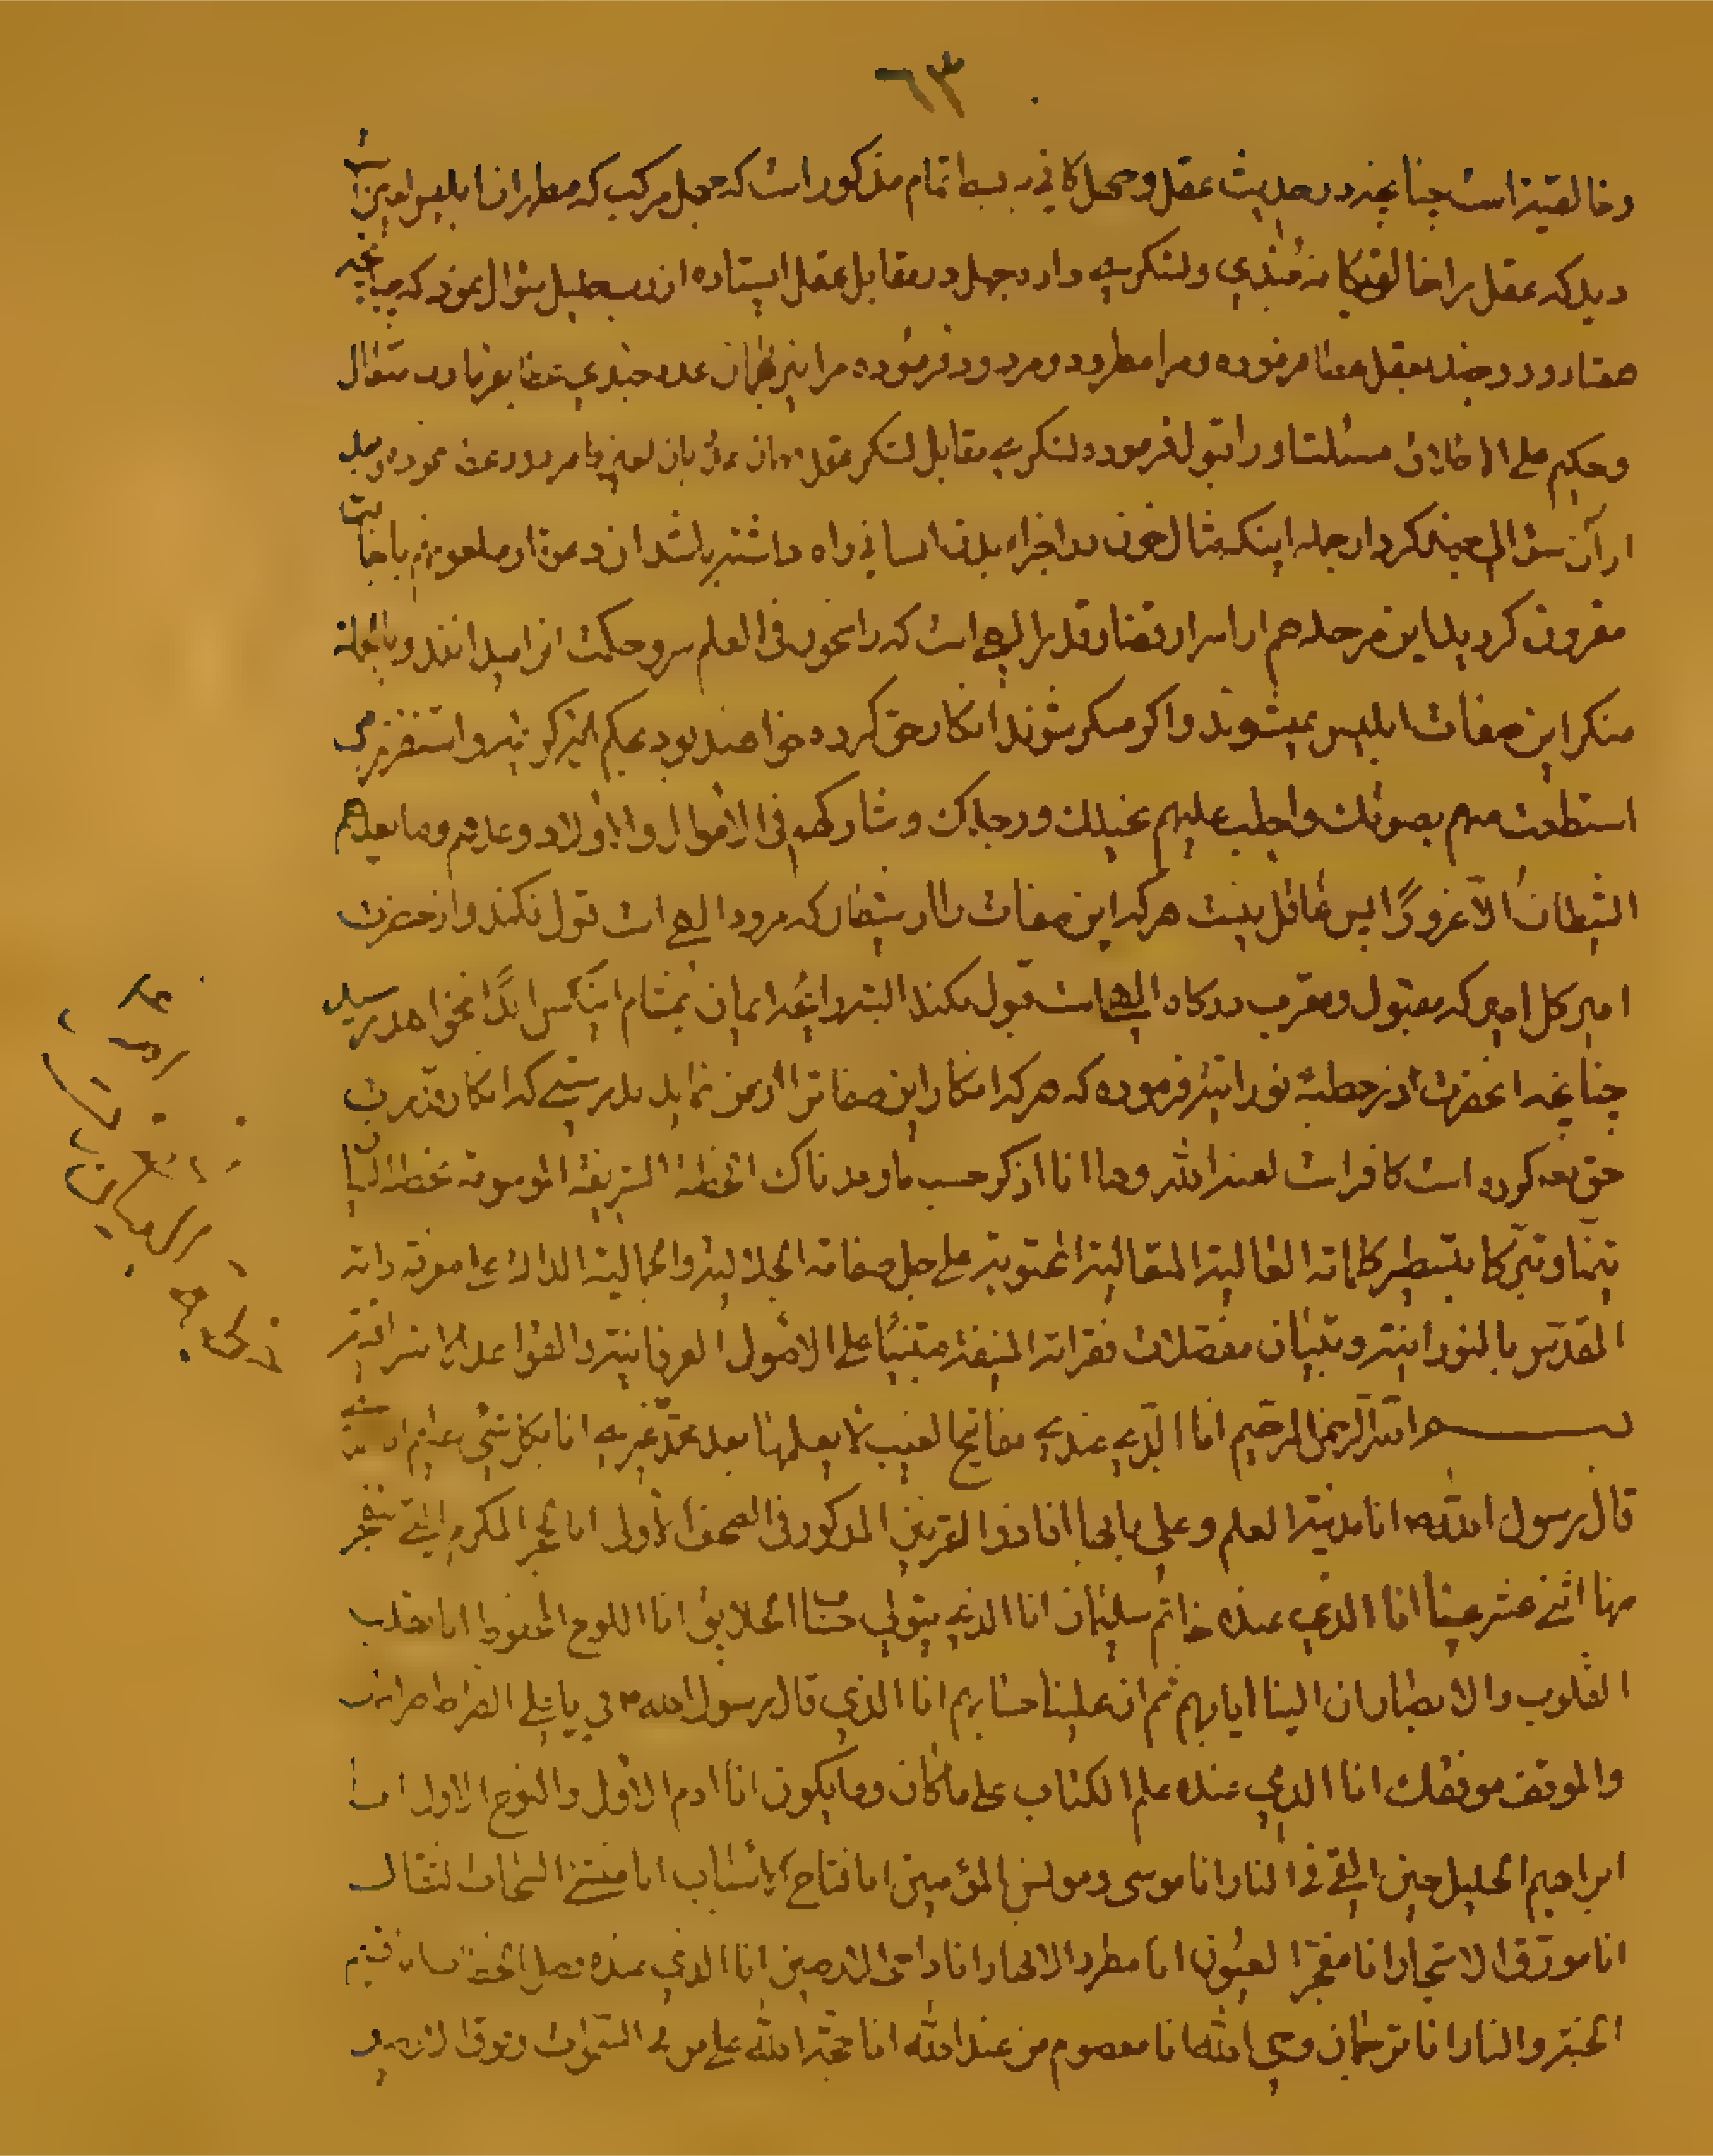 ٦٣
و خالقیة است چنانچه در حدیث عقل و جهل کافی به بسط تمام مذکور است که جهل مرکب که مظهر ان ابلیس لعین است
دید که عقل را خالق یکانه جندی و لشکریه داد و جهل در مقابل عقل ایستاده از رب جلیل سؤال نمود که چنانچه
هفتاد و دو جند بعقل عطا فرموده و مرا مطرود و مردود فرموده مرا نیز بهمان عدد جندی عطا بفرما رب متعال
و حکیم علی الاطلاق مسئلت او را قبول فرموده لشکری مقابل لشکر عقل بان لعین
از آن سؤالی چند کرد از جمله اینکه مثال خون در اجزاء بدن انسانی راه داشته باشد ان دعوت ان ملعون هم باجابت
مقرون کردید این مرحله هم از اسرار قضا و قدر الهی است که راسخون فی العلم سر و حکمت انرا میدانند و بالجمله
منکر این صفات ابلیس نمیشوند و اکر منکر شوند انکار حق کرده خواهند بود بحکم و استفزز من
استطعت منهم بصوتک و اجلب علیهم بخیلک و رجلک و شارکهم فی الاموال و الاولاد و عدهم و ما یعدهم
الشیطان الا غرورًا پس عاقل نیست هرکه این صفات را از شیطان که مردود الهی است قبول نکند و از حضرت
امیر کل امیر که مقبول و مقرب درکاه الهی است قبول نکند البته رایحه ایمان بمشام اینکس ابدًا نخواهد رسید
چنانچه انحضرت در خطبهٔ نورانیة فرموده که هرکه انکار این صفات را از من نماید بدرستی که انکار قدرت
حق کرده است کافر است لعنه الله و ها انا اذکر حسب ما وعدناک الخطبة الشریفة الموسومة بخطبة البیان
تیمّنا و تبرّکا بتسطیر کلماته العالیة المتعالیة المحتویة علی جل صفاته الجلالیة و الجمالیة الدالة علی معرفة ذاته
المقدس بالنورانیة و تبیان مفصلات فقراته المنیفة مبتنیًا علی الاصول العرفانیة و القواعد الاشراقیة
بسم الله الرحمن الرحیم انا الذی عندی مفاتیح الغیب لا یعلمها بعد محمد غیری انا بکل شیء علیم انا الذی
قال رسول الله انا مدینة العلم و علی بابها انا ذو القرنین المذکور فی الصحف الاولی انا الحجر المکرم التی یتفجر
منها اثنی عشر عینا انا الذی عنده خاتم سلیمان انا الذی یتولی حساب الخلایق انا اللوح المحفوظ انا مقلب
القلوب و الابصار ان الینا ایابهم ثم ان علینا حسابهم انا الذی قال رسول الله لی یا علی الصراط صراطک
و الموقف موقفک انا الذی عنده علم الکتاب علی ما کان و ما یکون انا ادم الاول و النوح الاول انا
ابراهیم الخلیل حین القی فی النار انا موسی و مونس المؤمنین انا فتاح الاسباب انا منشئ السحاب الثقال
انا مورق الاشجار انا مفجر العیون انا مطرد الانهار انا داحی الارضین انا الذی عنده فصل الخطاب انا قسیم
الجنة و النار انا ترجمان وحی الله انا معصوم من عند الله انا حجة الله علی من فی السموات و فوق الارضین